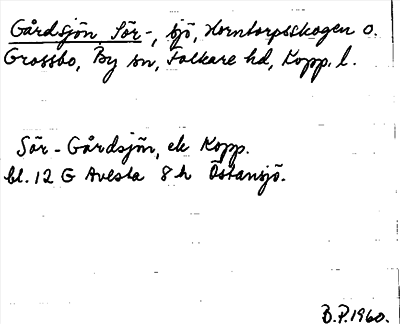 Gårdsjön, Sör-, sjö, Horntorpsskogen o.
Grossbo, By sn, Folkare hd, Kopp. l.
Sör-Gårdsjön, ek Kopp.
bl. 12 G Avesta 8 h Östansjö.
B.P. 1960.